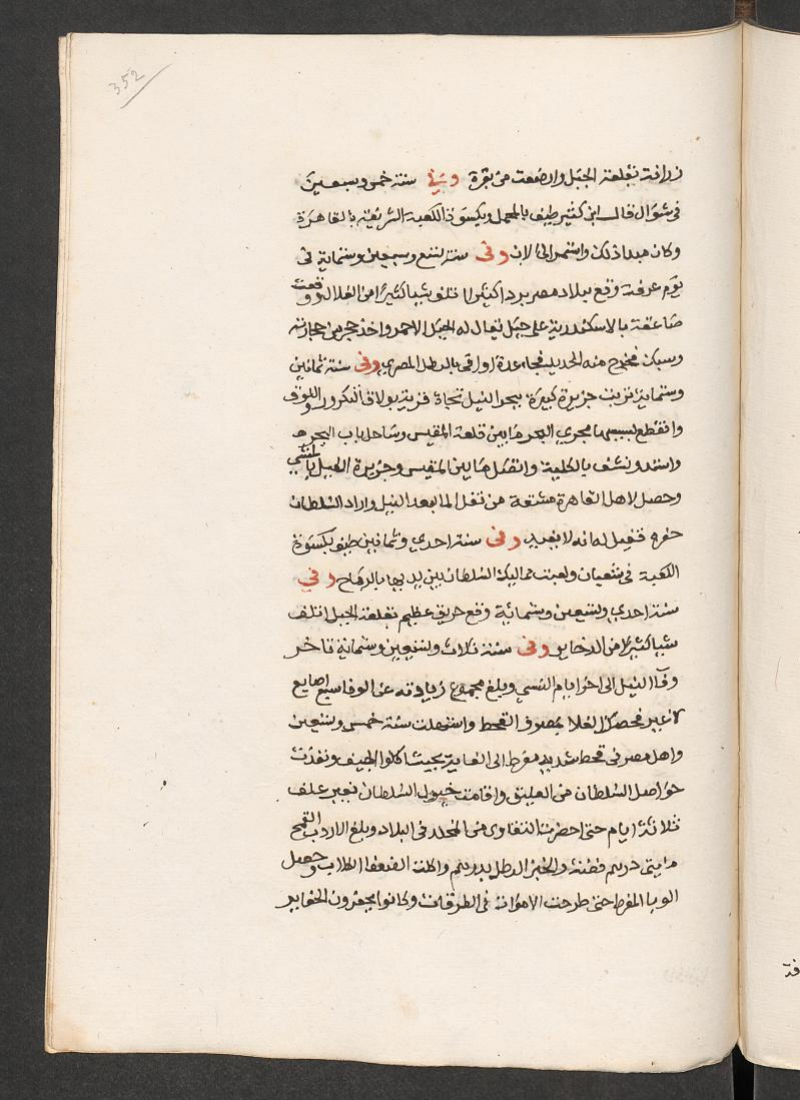 352
زرافة بقلعة الجبل وارضعت من بقرة وفي سنة خمس وسبعين
فى شوال قال ابن كثير طيف بالمحمل وبكسوة الكعبة الشريفة بالقاهرة
وكان مبدا ذلك واستمر الى الان وفى سنة تسع وسبعين وستماية فى
يوم عرفة وقع ببلاد مصر برد كثير اتلف شيا كثيرا من الغلال ووقعت
صاعقة بالاسكندرية على جبل يقال له الجبل الاحمر واخذ حجر من حجارته
وسبك فخرج منه الحديد فجا عدة اواقى بالرطل المصرى وفى سنة ثمانين
وستماية تربت جزيرة كبيرة ببحر النيل تجاة قرية بولاق التكرور واللوق
وانقطع بسببها مجرى البحر ما بين قلعة المقس وساحل باب البحر
واستد ونشف بالكلية واتصل ما بين المقس وجزيرة الفيل بالمشي
وحصل لاهل القاهرة مشقة من نقل الما لبعد النيل واراد السلطان
حفره فقيل له انه لا يفيد وفى سنة احدى وثمانين طيف بكسوة
الكعبة فى شعبان ولعبت مماليك السلطان بين يديها بالرماح وفي
سنة احدى وتسعين وستماية وقع حريق عظيم بقلعة الجبل اتلف
شيا كثيرا من الذخاير وفى سنة ثلاث وتسعين وستماية تاخر
وفا النيل الى اخر ايام النسى وبلغ مجموع زيادته عن الوفا سبع اصابع
لا غير فحصل الغلا بمصر والقحط واستهلت سنة خمس وتسعين
واهل مصر فى قحط شديد مفرط الى الغاية بحيث اكلوا الجيف ونفدت
حواصل السلطان من العليق واقامت خيول السلطان بغير علف
ثلاثة ايام حتى احضرت التقاوى من المخلد فى البلاد وبلغ الاردب القمح
مايتى درهم فضة والخبز الرطل بدرهم واكلت الضعفا الكلاب وحصل
الوبا المفرط حتى طرحت الاموات فى الطرقات وكانوا يحفرون الحفاير